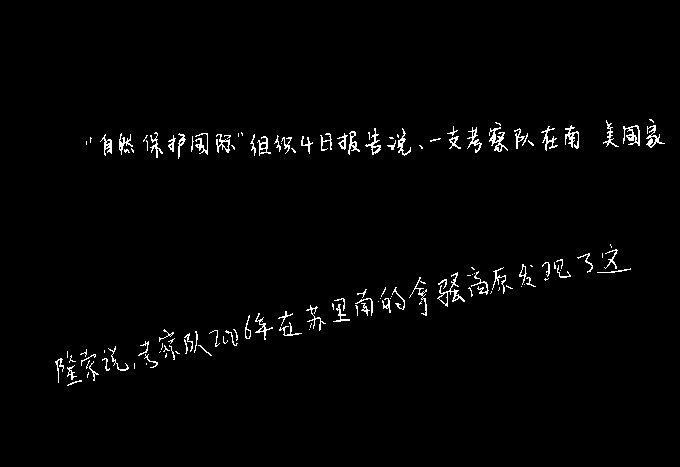 “自然保护国际”组织4日报告说、一支考察队在南美国家
隆索说,考察队2006年在苏里南的拿骚高原发现了这